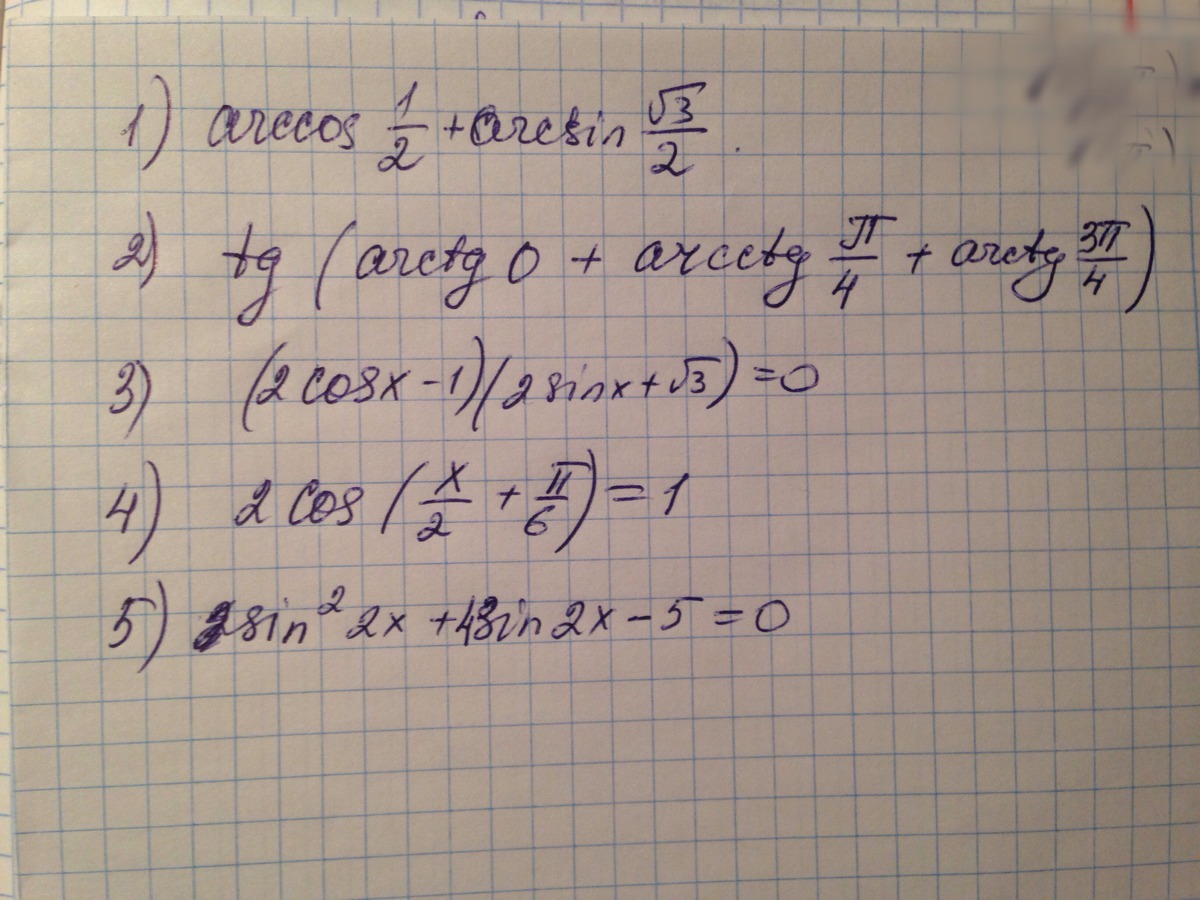 1) arccos 1/2 + arcsin √3/2.
2) tg (arctg 0 + arcctg π/4 + arctg 3π/4)
3) (2cosx - 1)(2sinx + √3) = 0
4) 2 cos (x/2 + π/6) = 1
5) sin² 2x + 4sin 2x - 5 = 0